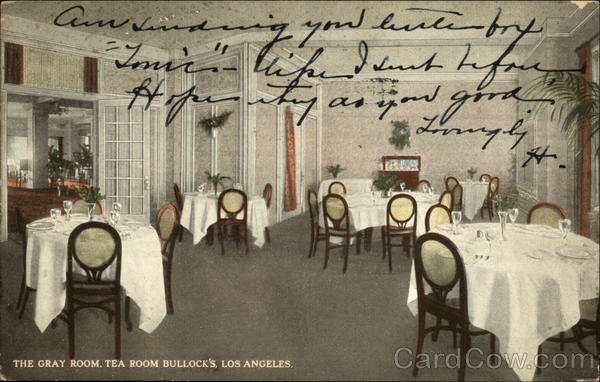 Am sending you little box
"Tonic" – like I sent before
Hope it may do you good.
Lovingly
H.
THE GRAY ROOM, TEA ROOM BULLOCK'S, LOS ANGELES.
CardCow.com